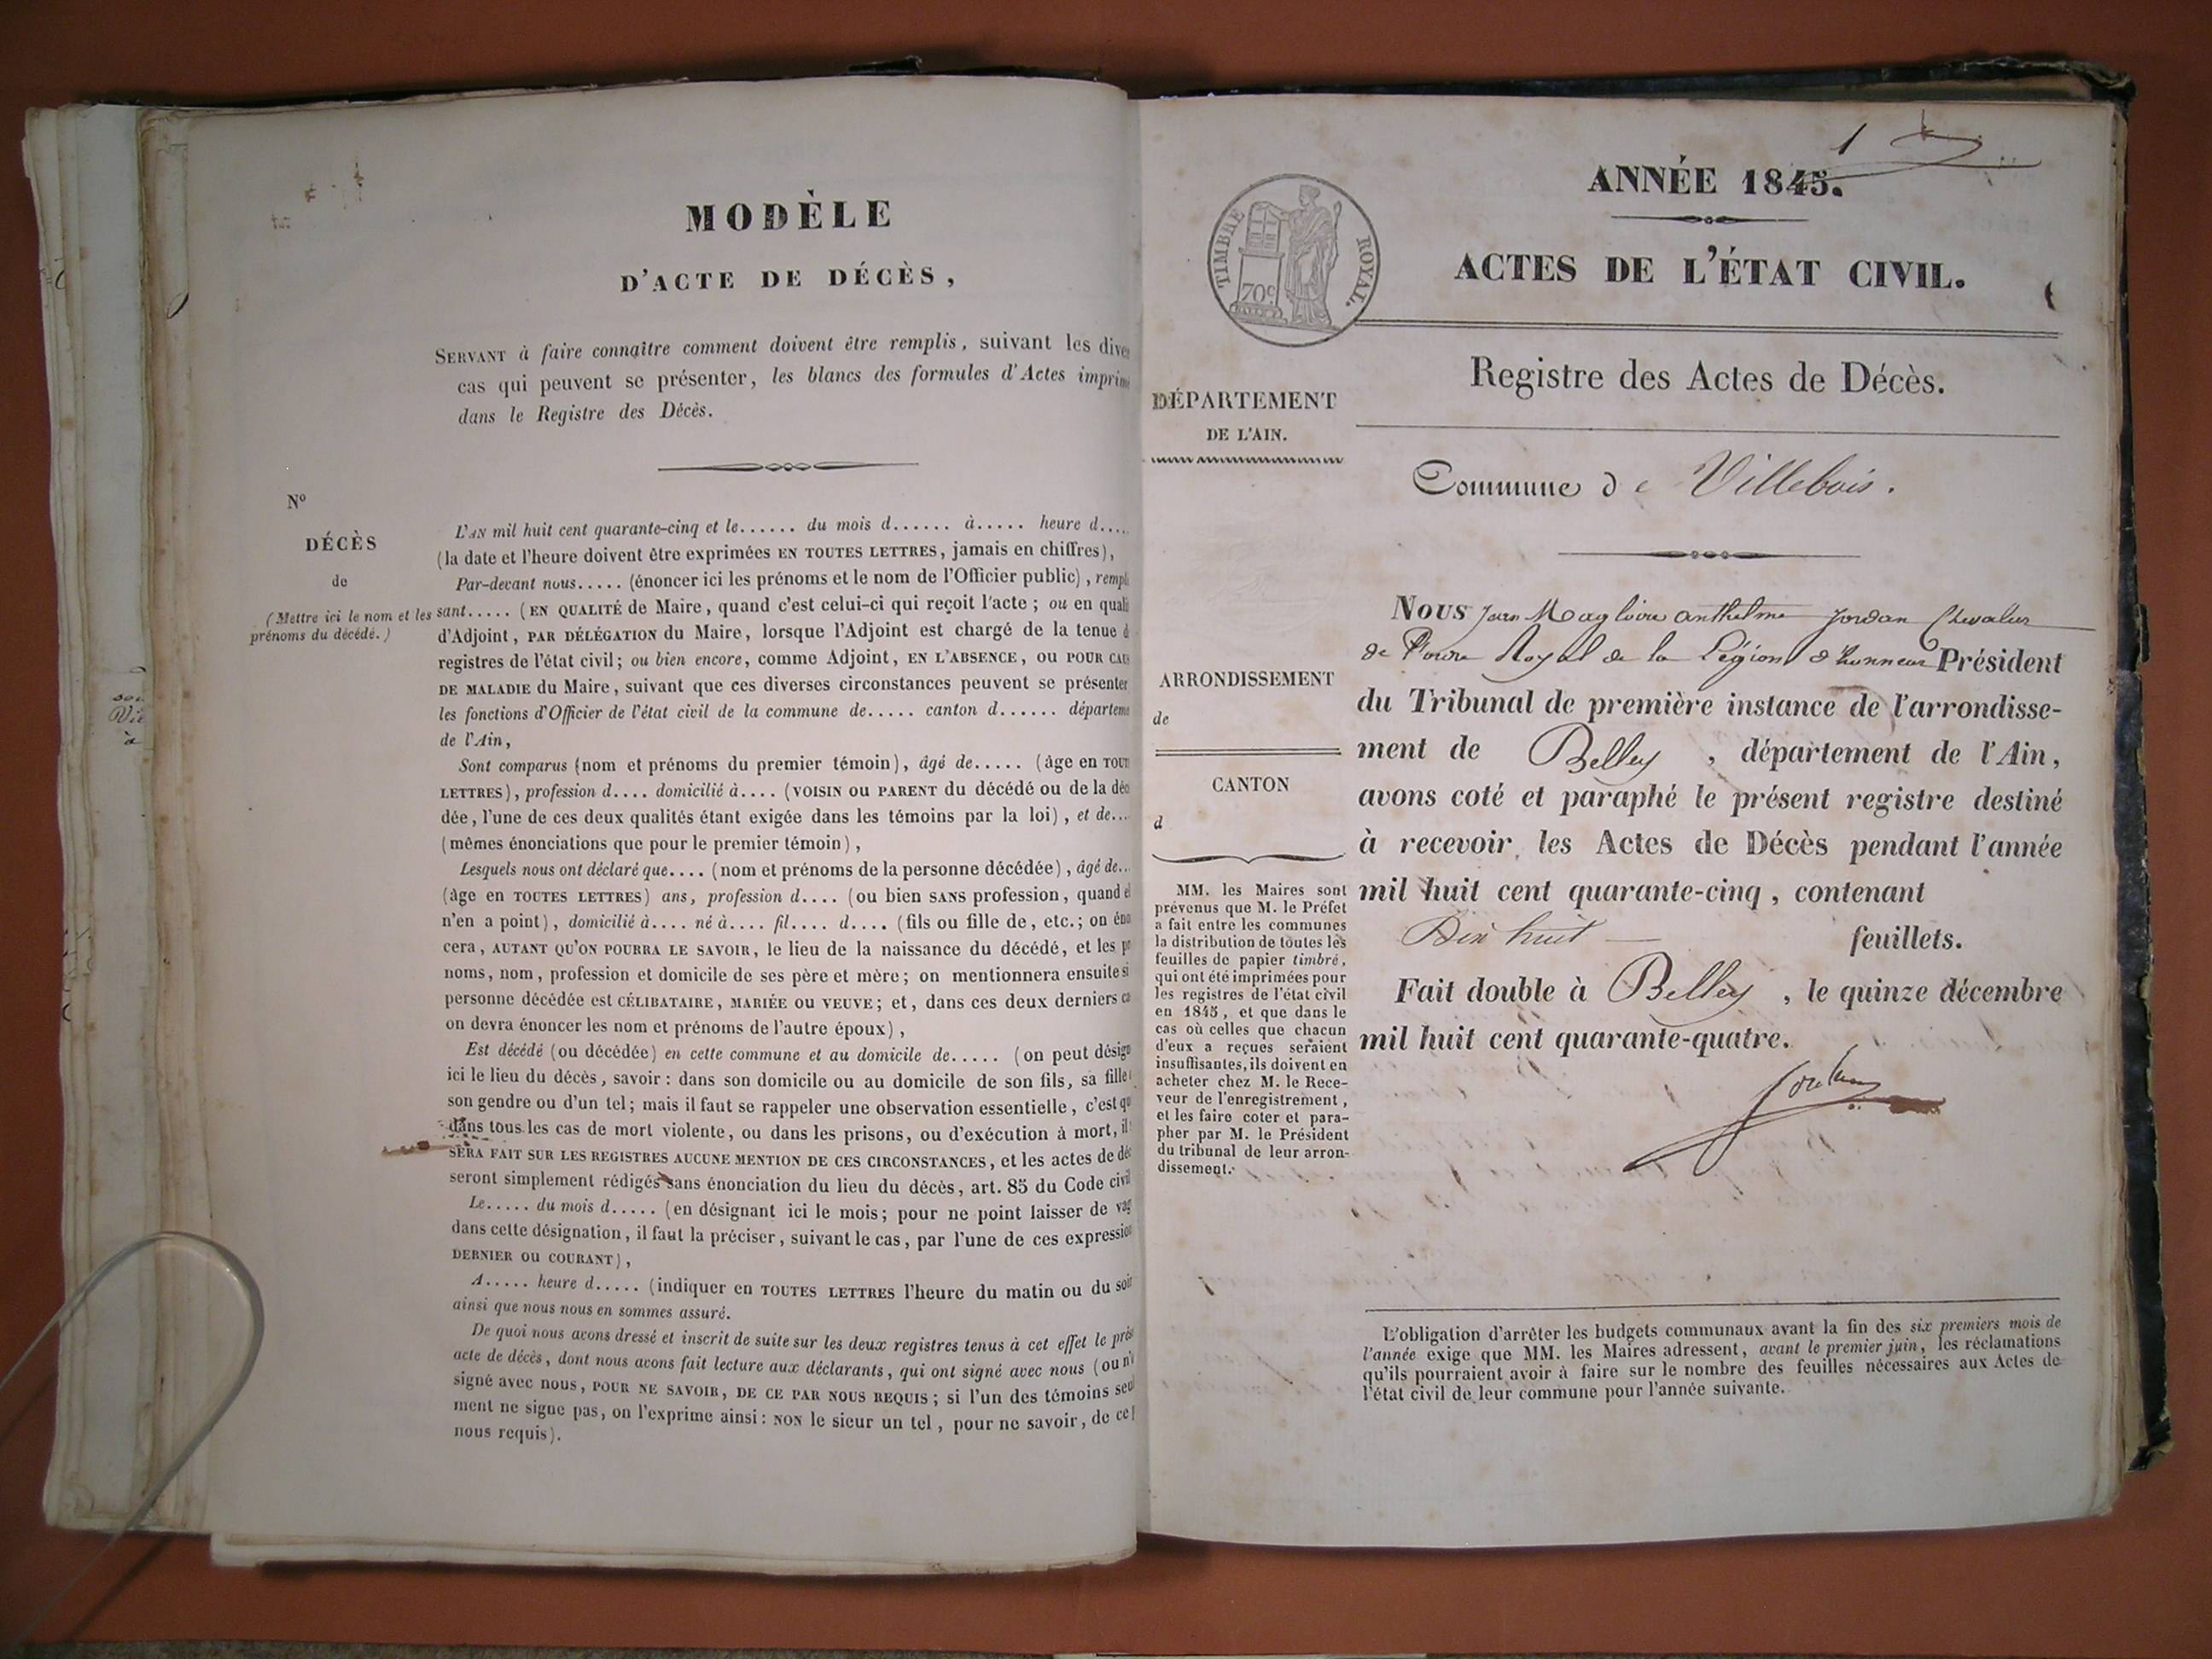 MODÈLE
D'ACTE DE DÉCÈS,
SERVANT à faire connaître comment doivent être remplis, suivant les
cas qui peuvent se présenter, les blancs des formules d'Actes
dans le Registre des Décès.
Nº
DÉCÈS
de
(Mettre ici le nom et les
prénoms du décédé.)
L'AN mil huit cent quarante-cinq et le...... du mois d...... à..... heure d....
(la date et l'heure doivent être exprimées EN TOUTES LETTRES, jamais en chiffres),
Par-devant nous..... (énoncer ici les prénoms et le nom de l'Officier public),
sant..... (EN QUALITÉ de Maire, quand c'est celui-ci qui reçoit l'acte; ou en
d'Adjoint, PAR DÉLÉGATION du Maire, lorsque l'Adjoint est chargé de la tenue
registres de l'état civil; ou bien encore, comme Adjoint, EN L'ABSENCE, OU POUR
DE MALADIE du Maire, suivant que ces diverses circonstances peuvent se présenter
les fonctions d'Officier de l'état civil de la commune de..... canton d......
de l'Ain,
Sont comparus (nom et prénoms du premier témoin), âgé de..... (âge en
LETTRES), profession d.... domicilié à.... (VOISIN OU PARENT du décédé ou de la
dée, l'une de ces deux qualités étant exigée dans les témoins par la loi), et de...
(mêmes énonciations que pour le premier témoin),
Lesquels nous ont déclaré que.... (nom et prénoms de la personne décédée), âgé de...
(âge en TOUTES LETTRES) ans, profession d.... (ou bien SANS profession, quand
n'en a point), domicilié à.... né à.... fil.... d.... (fils ou fille de, etc.; on
cera, AUTANT QU'ON POURRA LE SAVOIR, le lieu de la naissance du décédé, et les
noms, nom, profession et domicile de ses père et mère; on mentionnera ensuite si
personne décédée est CÉLIBATAIRE, MARIÉE OU VEUVE; et, dans ces deux derniers
on devra énoncer les nom et prénoms de l'autre époux),
Est décédé (ou décédée) en cette commune et au domicile de..... (on peut
ici le lieu du décès, savoir: dans son domicile ou au domicile de son fils, sa fille
son gendre ou d'un tel; mais il faut se rappeler une observation essentielle, c'est
dans tous les cas de mort violente, ou dans les prisons, ou d'exécution à mort, il
SERA FAIT SUR LES REGISTRES AUCUNE MENTION DE CES CIRCONSTANCES, et les actes de
seront simplement rédigés sans énonciation du lieu du décès, art. 85 du Code
Le..... du mois d..... (en désignant ici le mois; pour ne point laisser de
dans cette désignation, il faut la préciser, suivant le cas, par l'une de ces
DERNIER OU COURANT),
A..... heure d..... (indiquer en TOUTES LETTRES l'heure du matin ou du soir
ainsi que nous nous en sommes assuré.
De quoi nous avons dressé et inscrit de suite sur les deux registres tenus à cet effet le
acte de décès, dont nous avons fait lecture aux déclarants, qui ont signé avec nous (ou
signé avec nous, POUR NE SAVOIR, DE CE PAR NOUS REQUIS; si l'un des témoins
ment ne signe pas, on l'exprime ainsi: NON le sieur un tel, pour ne savoir, de ce
nous requis).
1
ANNÉE 1845.
ACTES DE L'ÉTAT CIVIL.
TIMBRE ROYAL.
70c
Registre des Actes de Décès.
DÉPARTEMENT
DE L'AIN.
Commune de Villebois.
ARRONDISSEMENT
de
CANTON
d
MM. les Maires sont
prévenus que M. le Préfet
a fait entre les communes
la distribution de toutes les
feuilles de papier timbré,
qui ont été imprimées pour
les registres de l'état civil
en 1845, et que dans le
cas où celles que chacun
d'eux a reçues seraient
insuffisantes, ils doivent en
acheter chez M. le Rece-
veur de l'enregistrement,
et les faire coter et para-
pher par M. le Président
du tribunal de leur arron-
dissement.
Nous Jean Magloire Anthelme Jordan Chevalier
de l'ordre Royal de la Légion d'honneur Président
du Tribunal de première instance de l'arrondisse-
ment de Belley, département de l'Ain,
avons coté et paraphé le présent registre destiné
à recevoir les Actes de Décès pendant l'année
mil huit cent quarante-cinq, contenant
Dix huit feuillets.
Fait double à Belley, le quinze décembre
mil huit cent quarante-quatre.
Jordan
L'obligation d'arrêter les budgets communaux avant la fin des six premiers mois de
l'année exige que MM. les Maires adressent, avant le premier juin, les réclamations
qu'ils pourraient avoir à faire sur le nombre des feuilles nécessaires aux Actes de
l'état civil de leur commune pour l'année suivante.